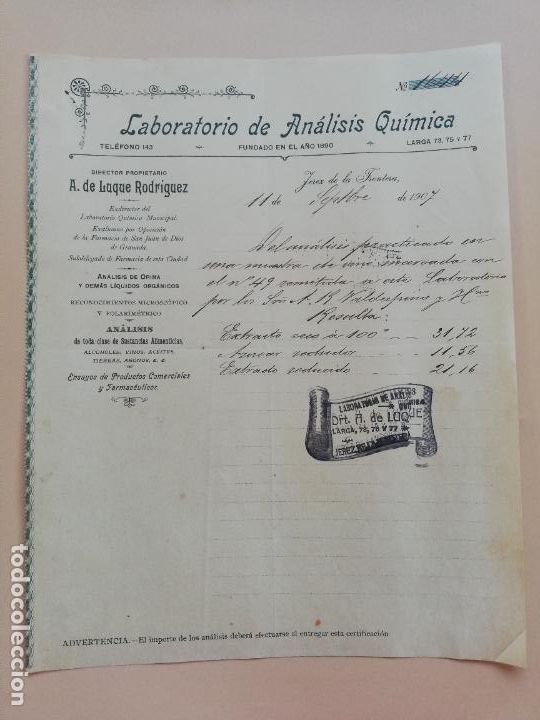 Nº
Laboratorio de Análisis Química
TELÉFONO 143 FUNDADO EN EL AÑO 1890 LARGA 73, 75 Y 77
DIRECTOR PROPIETARIO
A. de Luque Rodríguez
Exdirector del
Laboratorio Químico Municipal.
Exalumno por Oposición
de la Farmacia de San Juan de Dios
de Granada.
Subdelegado de Farmacia de esta Ciudad
ANÁLISIS DE ORINA
Y DEMÁS LÍQUIDOS ORGÁNICOS
RECONOCIMIENTOS MICROSCÓPICO
Y POLARIMÉTRICO
ANÁLISIS
de toda clase de Sustancias Alimenticias,
ALCOHOLES, VINOS, ACEITES,
TIERRAS, ABONOS, & &
Ensayos de Productos Comerciales
y Farmacéuticos.
Jerez de la Frontera,
11 de Septbre de 1907
Del análisis practicado en
una muestra de vino marcada con
el nº 49 remitida a este Laboratorio
por los Sres A. R. Valdespino y Hno
Resulta:
Extracto seco à 100º 31,72
Azucar reductor 11,56
Extracto reducido 21,16
LABORATORIO DE ANÁLISIS
QUÍMICA
Drt. A. de LUQUE
LARGA, 73, 75 Y 77
JEREZ DE LA FRONTERA
ADVERTENCIA.—El importe de los análisis deberá efectuarse al entregar esta certificación
todocoleccion